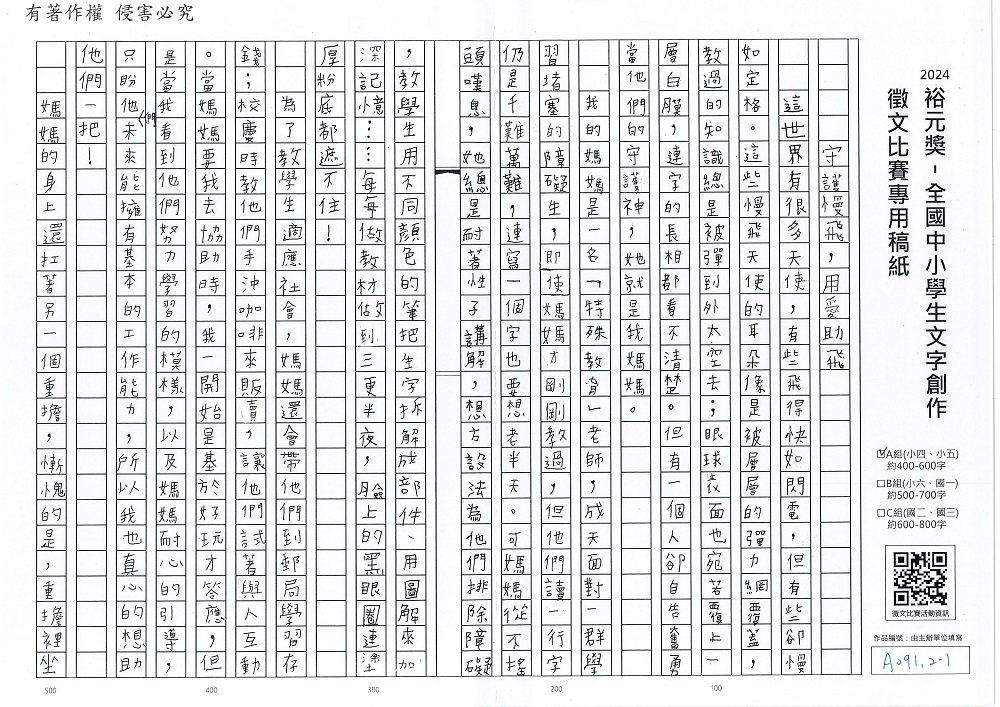 有著作權 侵害必究
2024
裕元獎-全國中小學生文字創作
徵文比賽專用稿紙
☑A組(小四、小五)
約400-600字
□B組(小六、國一)
約500-700字
□C組(國二、國三)
約600-800字
徵文比賽活動資訊
作品編號：由主辦單位填寫
A091.2-1
守護慢飛，用愛助飛
這世界有很多天使，有些飛得快如閃電，但有些卻慢
如定格。這些慢飛天使的耳朵像是被層層的彈力網覆蓋，
教過的知識總是被彈到外太空去；眼球表面也宛若覆上一
層白膜，連字的長相都看不清楚。但有一個人卻自告奮勇
當他們的守護神，她就是我媽媽。
我的媽媽是一名「特殊教育」老師，成天面對一群學
習堵塞的障礙生，即使媽媽才剛剛教過，但他們讀一行字
仍是千難萬難，連寫一個字也要想老半天。可媽媽從不搖
頭嘆息，她總是耐著性子講解，想方設法為他們排除障礙
，教學生用不同顏色的筆把生字拆解成部件、用圖解來加
深記憶……每每做教材做到三更半夜，臉上的黑眼圈連塗
厚粉底都遮不住！
為了教學生適應社會，媽媽還會帶他們到郵局學習存
錢；校慶時教他們手沖咖啡來販賣，讓他們試著與人互動
。當媽媽要我去協助時，我一開始是基於好玩才答應，但
是當我看到他們努力學習的模樣，以及媽媽耐心的引導，
只盼他們未來能擁有基本的工作能力，所以我也真心的想助
他們一把！
媽媽的身上還扛著另一個重擔，慚愧的是，重擔裡坐
100
200
300
400
500